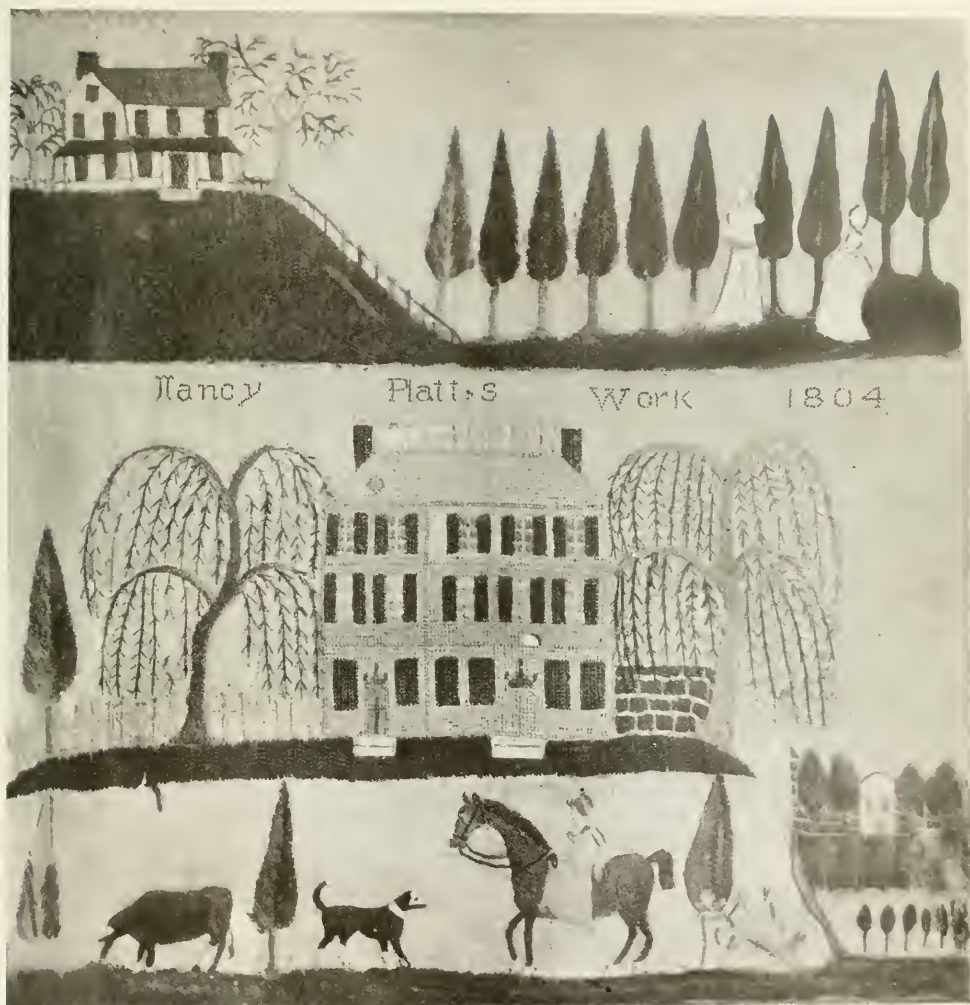 Nancy Platt,s Work 1804